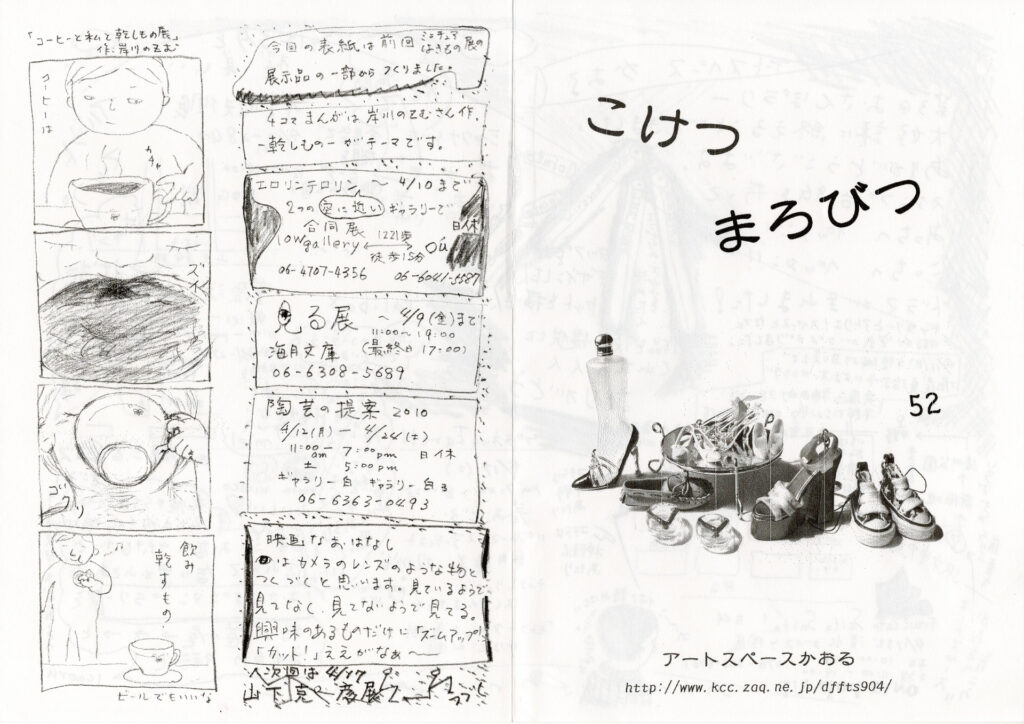 「コーヒーと私と乾しもの展」
作:岸川のぞむ
コーヒーは
カチャ
ズイ
ゴク
飲み
乾すもの!
ビールでもいいな
今回の表紙は前回ミニチュアはきもの展の
展示品の一部からつくりました。
4コマまんがは岸川のぞむさん作。
ー乾しものーがテーマです。
エロリンテロリン 〜4/10まで
2つの空に近いギャラリーで
合同展
日休
low gallery ←1221歩→ oú
徒歩15分
06-4707-4356 06-6041-5587
見る展 〜4/9(金)まで
11:00〜19:00
海月文庫 (最終日17:00)
06-6308-5689
陶芸の提案 2010
4/12(月)ー4/24(土)
11:00am ー 7:00pm 日休
土 5:00pm
ギャラリー白 ギャラリー白3
06-6363-0493
映画なおはなし
はカメラのレンズのような物と
つくづくと思います。見ているようで
見てなく、見てないようで見てる。
興味のあるものだけに「ズームアップ!」
「カット!」ええがなぁ〜
次週は4/17
山下克彦展
こけつ
まろびつ
52
アートスペースかおる
http://www.kcc.zaq.ne.jp/dffts904/